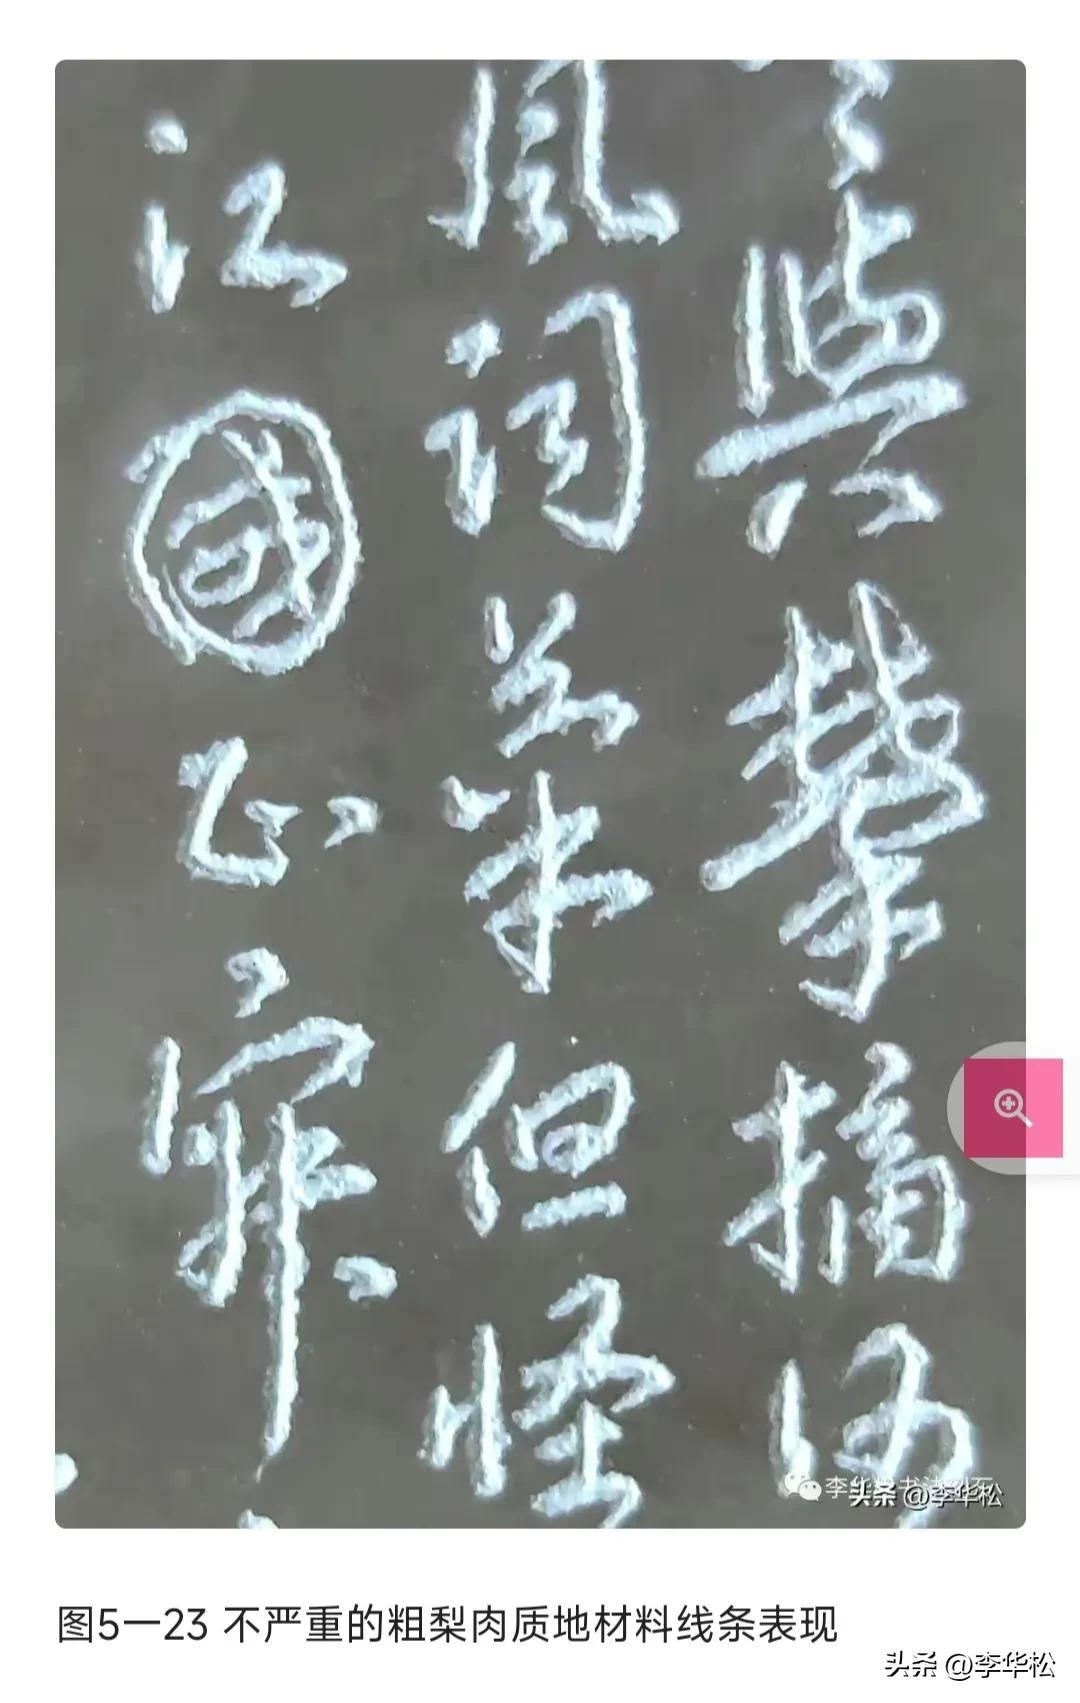 與攀摘何
風詞筆但怪
江國正寂
头条 @李华松
图5—23 不严重的粗梨肉质地材料线条表现
头条 @李华松